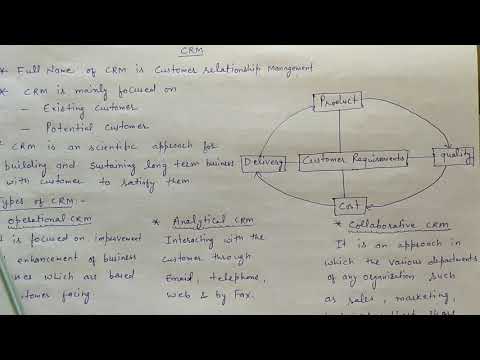 CRM
* Full Name of CRM is Customer relationship Management
* CRM is mainly focused on
– Existing customer
– Potential customer
CRM is an scientific approach for
building and sustaining long term business
with customer to satisfy them
Product
Delivery
Customer Requirements
quality
Cost
Types of CRM :-
operational CRM
is focused on improvement
enhancement of business
which are based
facing
* Analytical CRM
Interacting with the
customer through
Email, telephone,
web & by Fax.
* Collaborative CRM
It is an approach in
which the various departments
of any organization such
as sales, marketing,